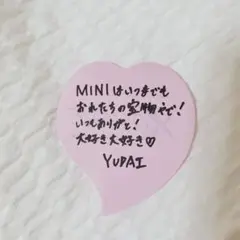 MINIはいつまでも
おれたちの宝物やで!
いつもありがと!
大好き大好き♡
YUDAI